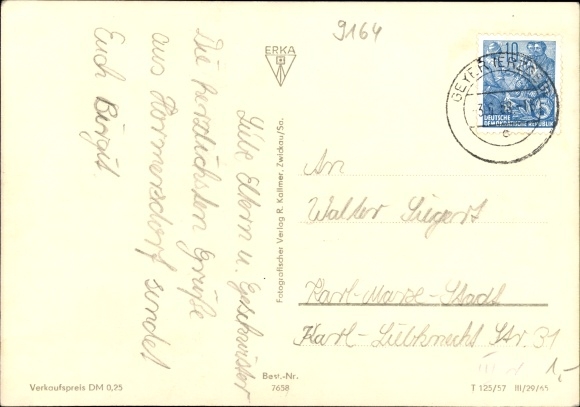 9164
ERKA
Liebe Eltern u. Geschwister
Die herzlichsten Grüße
aus Hormersdorf sendet
Euch Birgit.
Fotografischer Verlag R. Kallmer, Zwickau/Sa.
10
DEUTSCHE
DEMOKRATISCHE REPUBLIK
5
GEYER
c
An
Walter Siegert
Karl-Marx-Stadt
Karl-Liebknecht Str. 31
1,-
Verkaufspreis DM 0,25
Best.-Nr.
7658
T 125/57 III/29/65